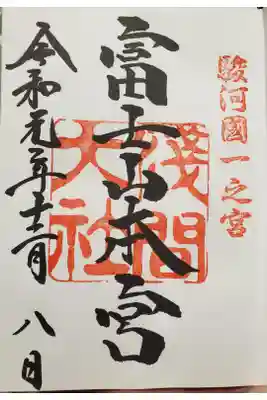 駿河國一之宮
富士山本宮
淺間
大社
令和元年十二月八日